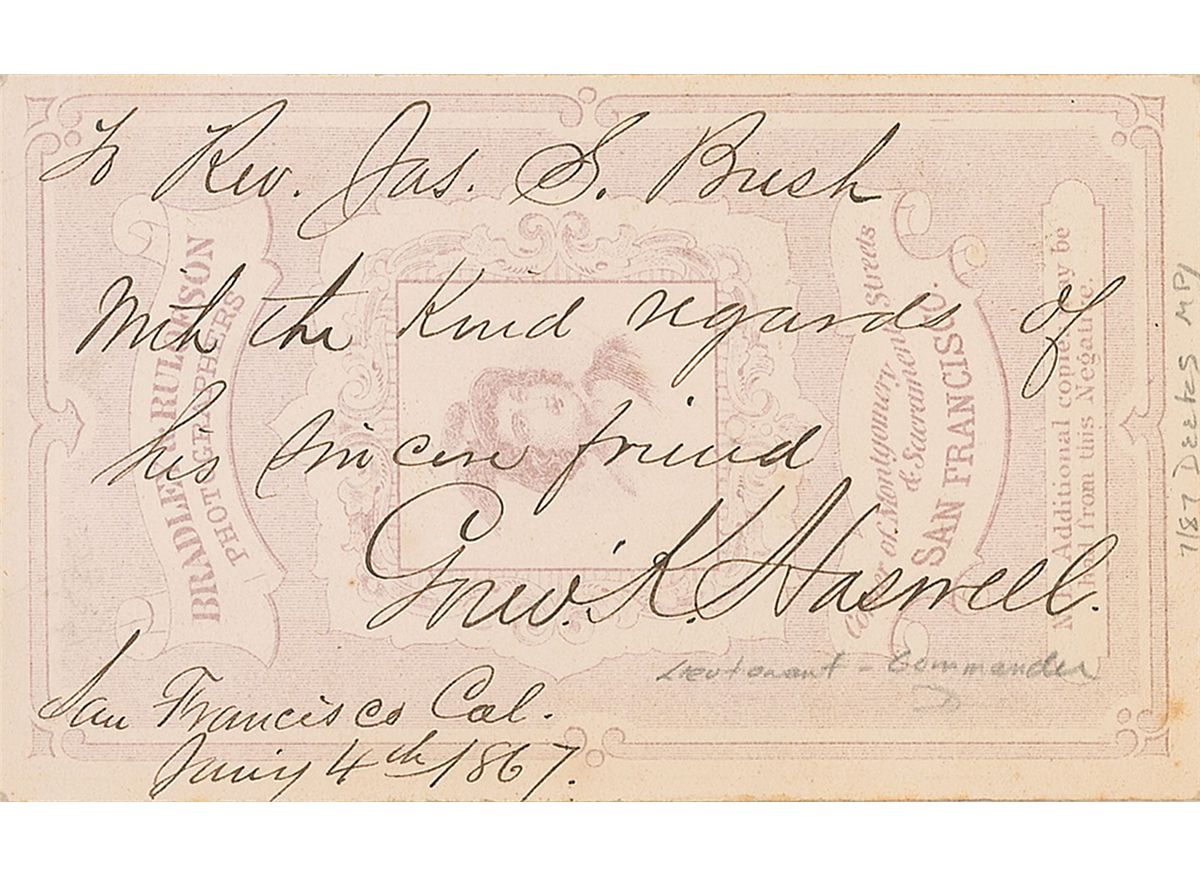 To Rev. Jas. S. Bush
With the Kind regards of
his sincere friend
Gouv. K. Haswell.
Lieutenant-Commander
San Francisco Cal.
Jany 4th 1867.
BRADLEY & RULOFSON
PHOTOGRAPHERS
Corner of Montgomery
& Sacramento Streets
SAN FRANCISCO.
N. Additional copies may be
had from this Negative.
7/87 DEEKS